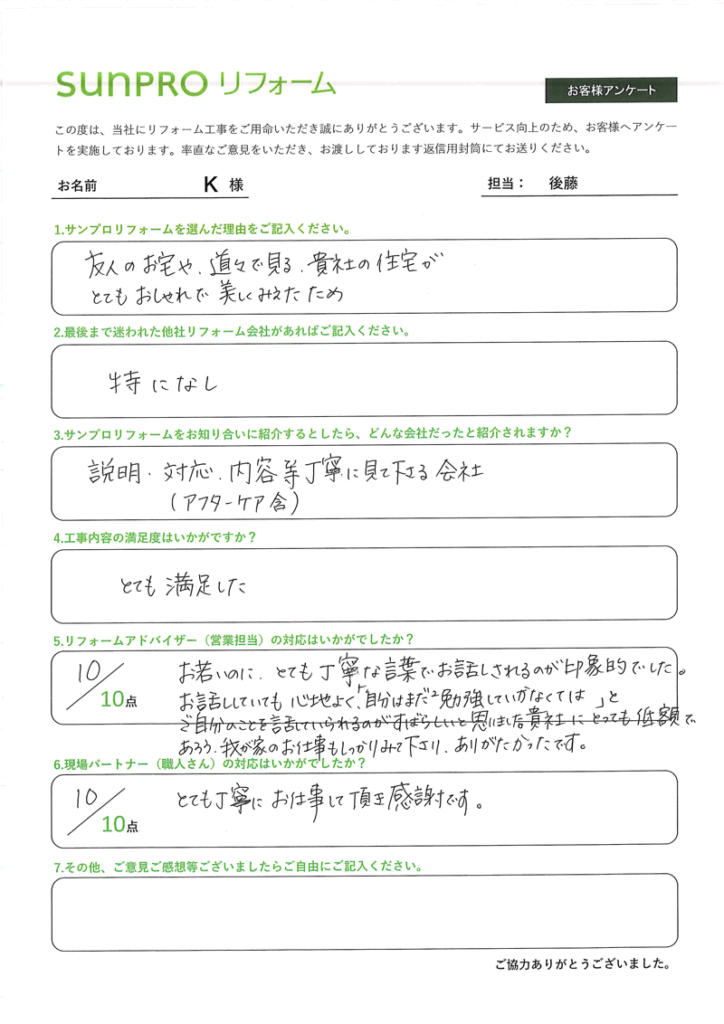 sunPRO リフォーム
お客様アンケート
この度は、当社にリフォーム工事をご用命いただき誠にありがとうございます。サービス向上のため、お客様へアンケー
トを実施しております。率直なご意見をいただき、お渡ししております返信用封筒にてお送りください。
お名前 K 様 担当： 後藤
1.サンプロリフォームを選んだ理由をご記入ください。
友人のお宅や、道々で見る、貴社の住宅が
とてもおしゃれで美しくみえたため
2.最後まで迷われた他社リフォーム会社があればご記入ください。
特になし
3.サンプロリフォームをお知り合いに紹介するとしたら、どんな会社だったと紹介されますか？
説明・対応、内容等丁寧に見て下さる会社
（アフターケア含）
4.工事内容の満足度はいかがですか？
とても満足した
5.リフォームアドバイザー（営業担当）の対応はいかがでしたか？
10／10点
お若いのに、とても丁寧な言葉でお話しされるのが印象的でした。
お話ししていても心地よく、「自分はまだ²勉強していかなくては」と
ご自分のことを話していられるのがすばらしいと思いました貴社にとっても低額で
あろう、我が家のお仕事もしっかりみて下さり、ありがたかったです。
6.現場パートナー（職人さん）の対応はいかがでしたか？
10／10点
とても丁寧にお仕事して頂き感謝です。
7.その他、ご意見ご感想等ございましたらご自由にご記入ください。
ご協力ありがとうございました。